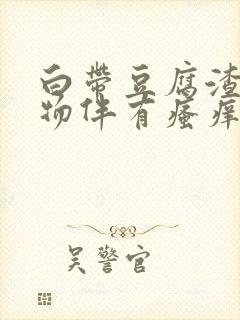 白带豆腐渣
物伴有瘙痒
吴警官